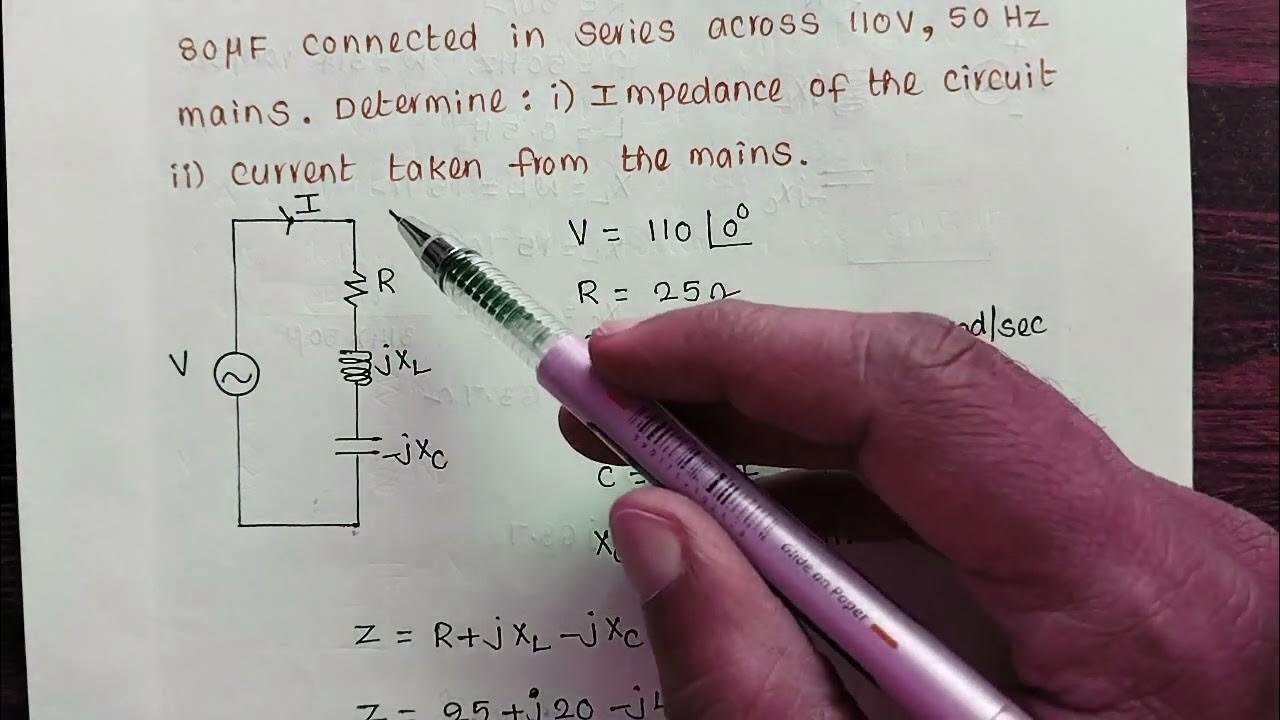 80μF connected in series across 110V, 50 Hz
mains. Determine: i) Impedance of the circuit
ii) current taken from the mains.
I
V = 110 ∠0°
R
R = 25Ω
/sec
V
jXL
-jXC
C =
Glide on Paper
Z = R+jXL-jXC
Z = 25+j20-j4